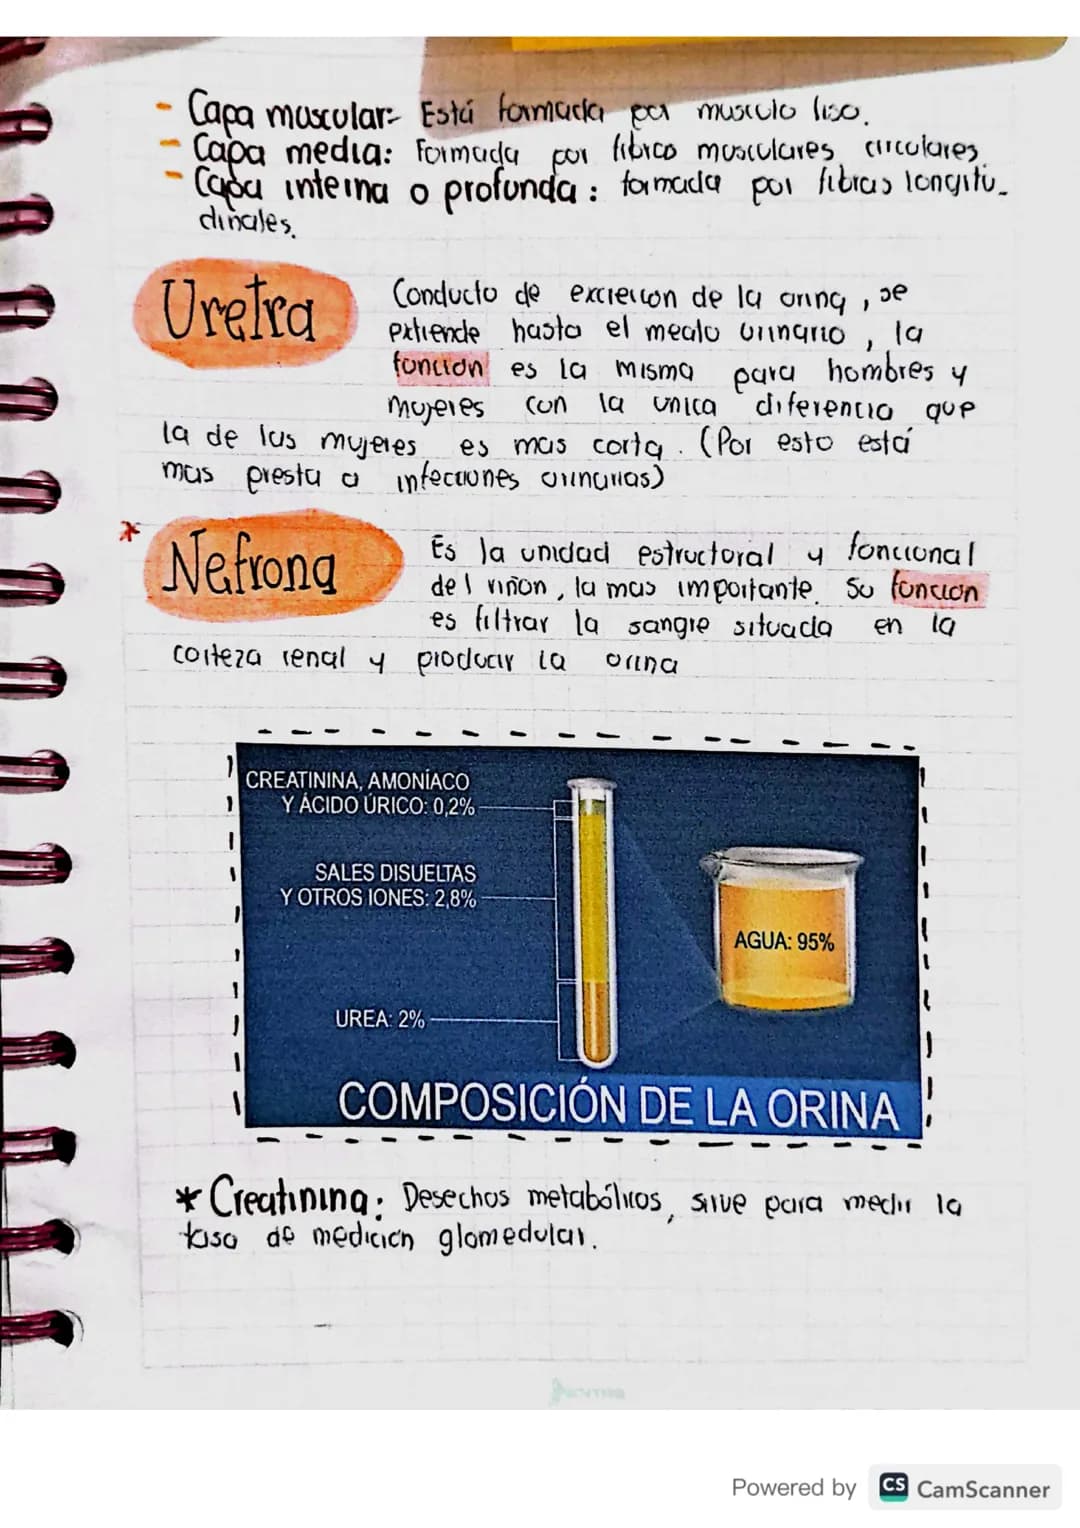 - Capa muscular: Está formada por musculo liso.
- Capa media: Formada por fibras musculares circulares.
- Capa interna o profunda: formada por fibras longitu-
dinales.
Uretra
Conducto de excreccon de la orina, se
extiende hasta el meato urinario, la
función es la misma para hombres y
mujeres con la unica diferencia que
la de las mujeres es mas corta. (Por esto está
mas presta a infecciones urinarias)
* Nefrona
Es la unidad estructural y funcional
del riñon, la mas importante. Su funcion
es filtrar la sangre situada en la
corteza renal y producir la orina
CREATININA, AMONÍACO
Y ÁCIDO ÚRICO: 0,2%
SALES DISUELTAS
Y OTROS IONES: 2,8%
AGUA: 95%
UREA: 2%
COMPOSICIÓN DE LA ORINA
* Creatinina: Desechos metabólicos, sirve para medir la
tasa de medicion glomedular.
Powered by CS CamScanner